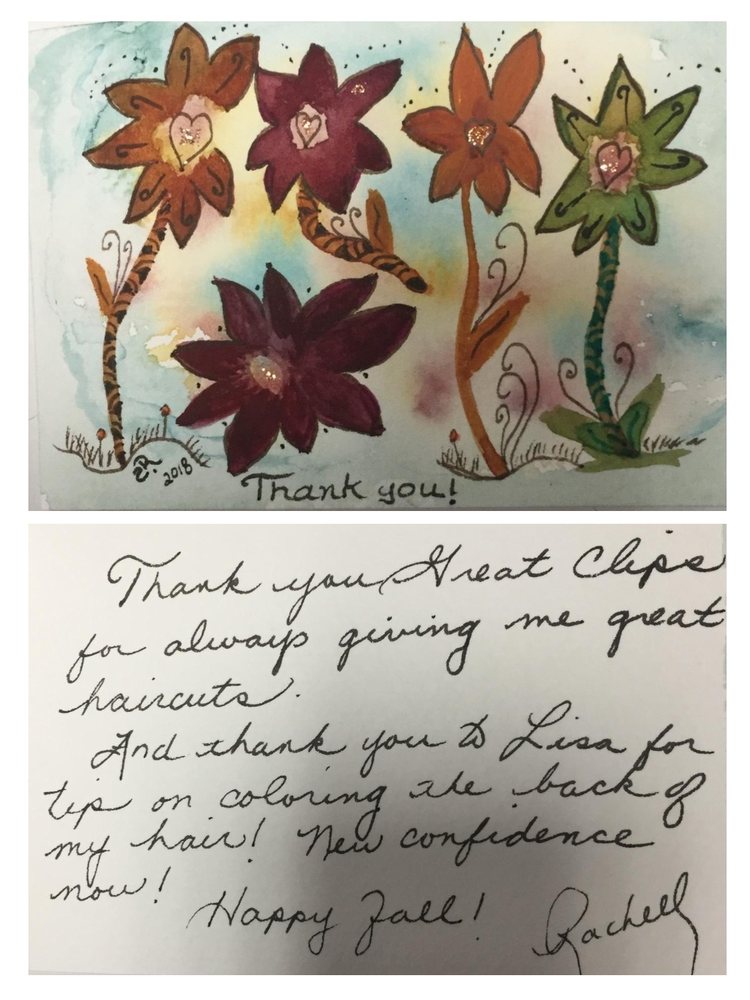 ER
2018
Thank you!
Thank you Great Clips
for always giving me great
haircuts.
And thank you to Lisa for
tip on coloring the back of
my hair! New confidence
now!
Happy Fall!
Rachell